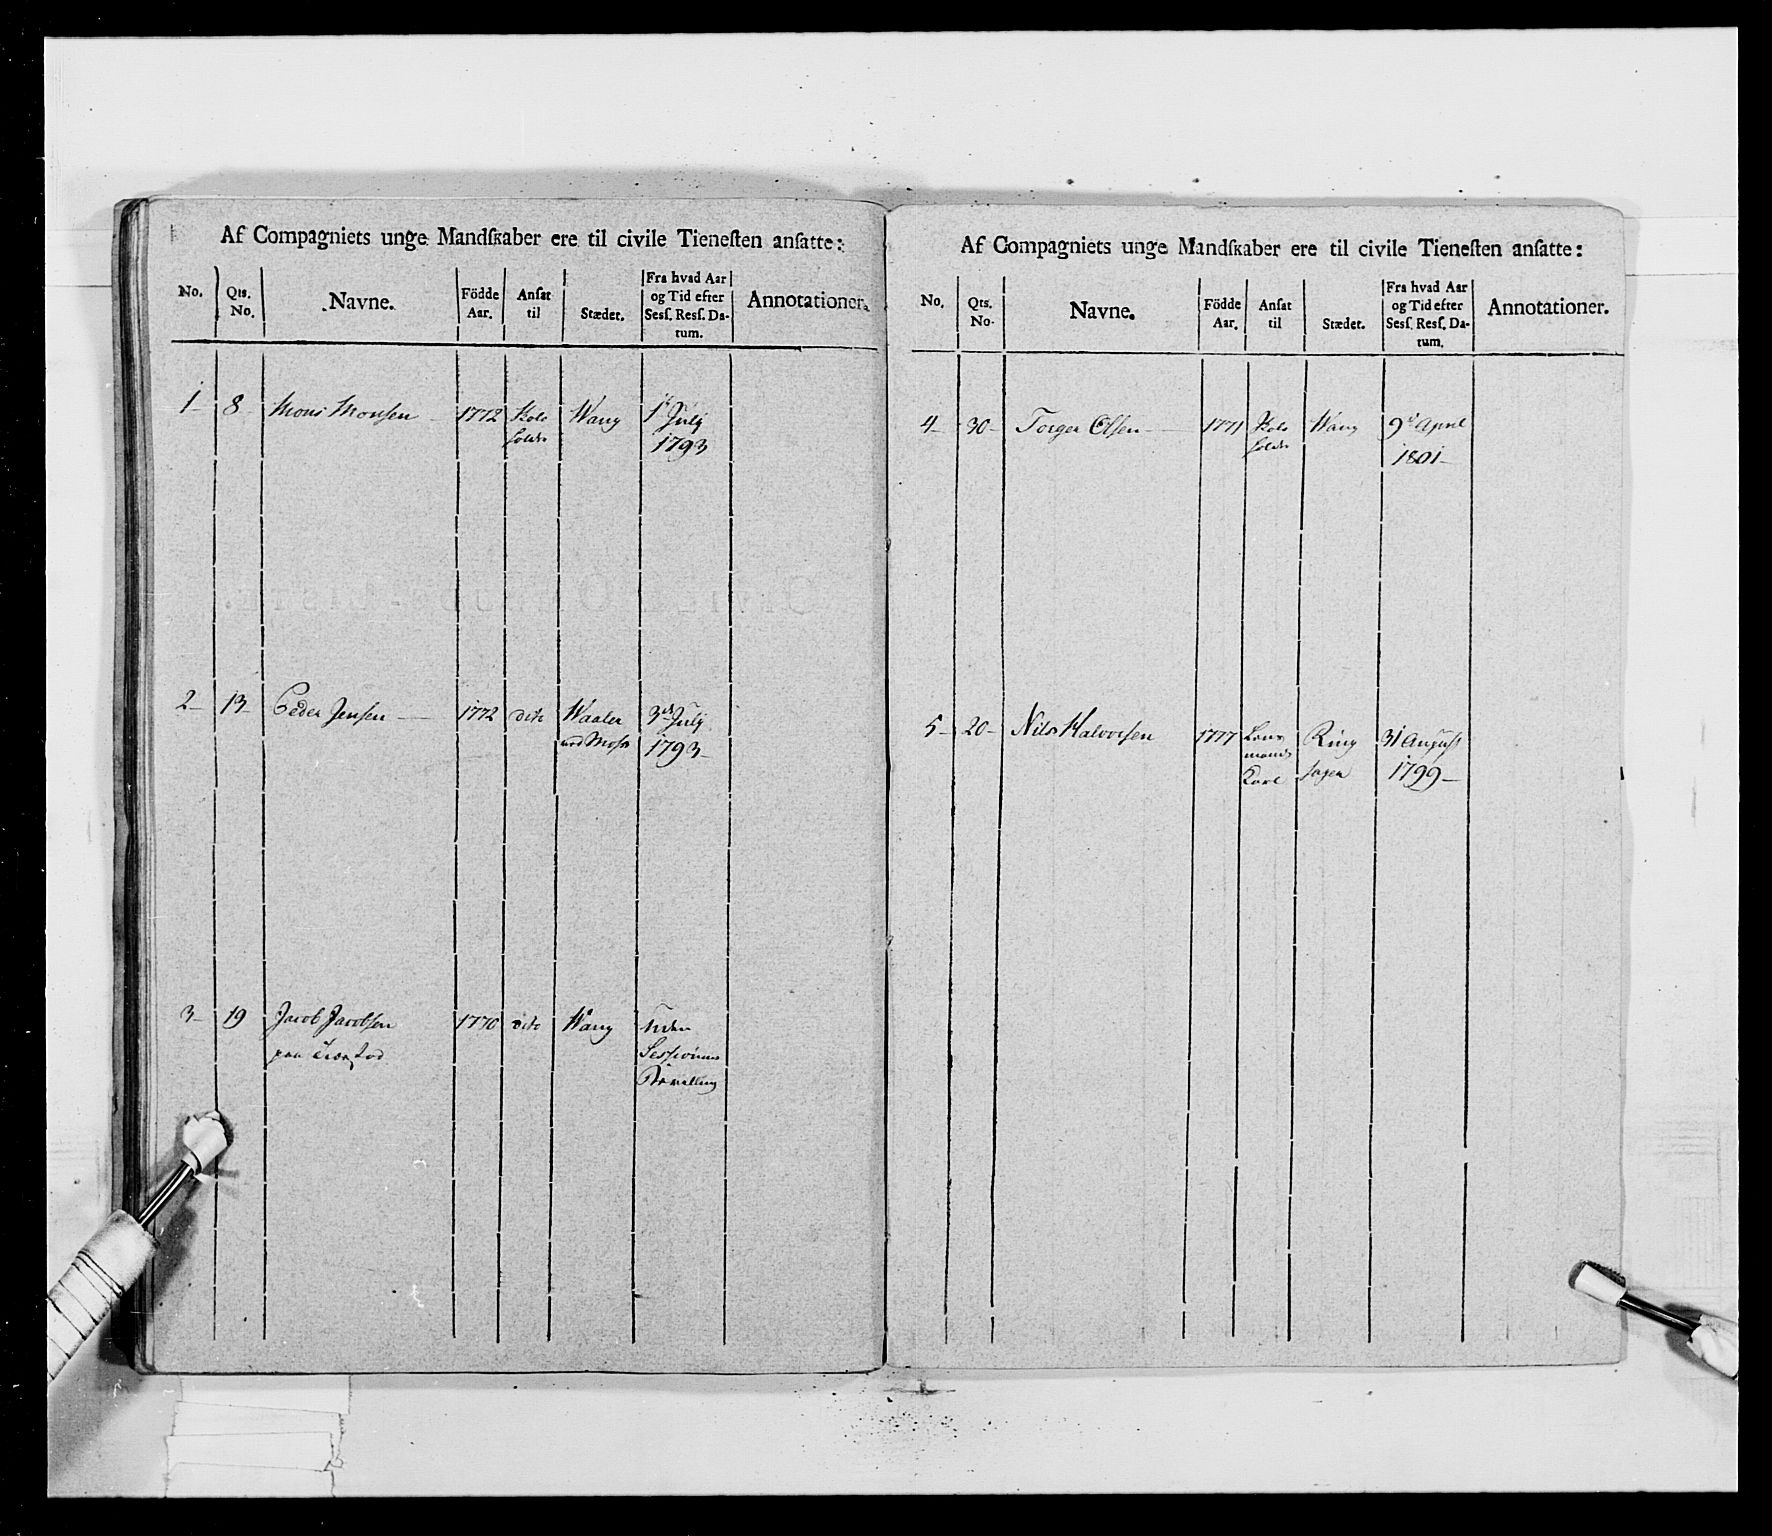 Af Compagniets unge Mandſkaber ere til civile Tieneſten anſatte:
No. Qts. No. Navne. Födde Aar. Anſat til Stædet. Fra hvad Aar og Tid efter Seſſ. Reſſ. Datum. Annotationer.
1 8 Mons Monsen 1772 Wang 1 Julj
1793
2 13 Peder Jensen 1772 dito Waaler 3 Julj
ved Moss 1793
3 19 Jacob Jacobsen 1770 dito Wang uden
paa Sessions
Af Compagniets unge Mandſkaber ere til civile Tieneſten anſatte:
No. Qts. No. Navne. Födde Aar. Anſat til Stædet. Fra hvad Aar og Tid efter Seſſ. Reſſ. Da-tum. Annotationer.
4 30 Torger Olsen 1771 Wang 9 April
1801
5 20 Nils Halvorsen 1777 Lens Ring 31 August
mands sager 1799
Karl